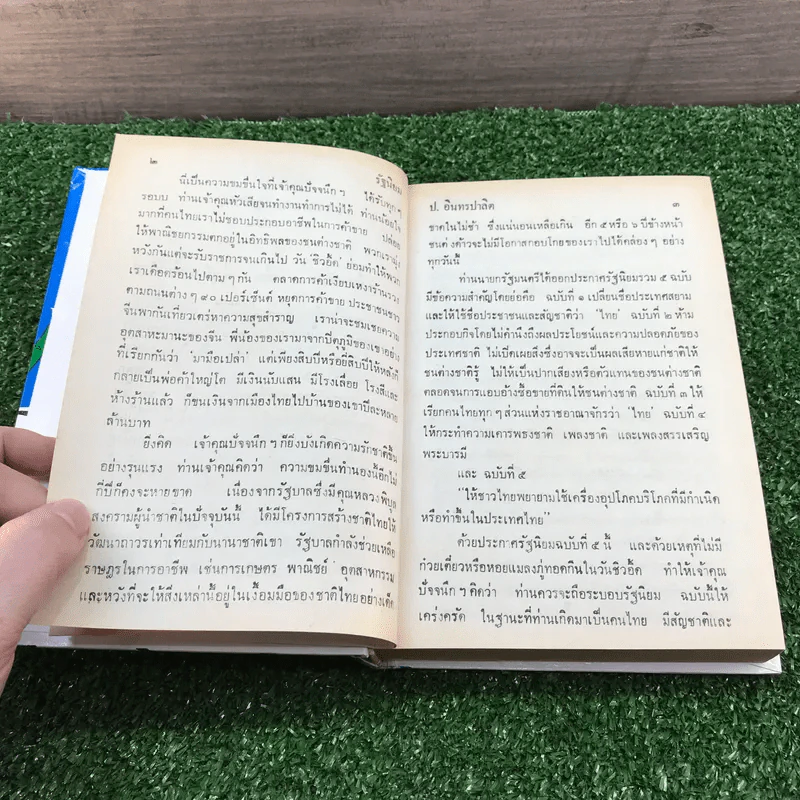 ๒
รัฐนิยม
นี่เป็นความขมขื่นใจที่เจ้าคุณปัจจนึก ๆ ได้รับทุก ๆ
รอบบ ท่านเจ้าคุณหัวเสียจนทำงานทำการไม่ได้ ท่านน้อยใจ
มากที่คนไทยเราไม่ชอบประกอบอาชีพในการค้าขาย ปล่อย
ให้พาณิชยกรรมตกอยู่ในอิทธิพลของชนต่างชาติ พวกเรามุ่ง
หวังกันแต่จะรับราชการจนเกินไป วัน 'ชิวอิ้ด' ย่อมทำให้พวก
เราเดือดร้อนไปตาม ๆ กัน ตลาดการค้าเงียบเหงาร้านรวง
ตามถนนต่าง ๆ ๙๐ เปอร์เซ็นต์ หยุดการค้าขาย ประชาชนชาว
จีนพากันเที่ยวเตร่หาความสุขสำราญ เราน่าจะชมเชยความ
อุตสาหะมานะของจีน พี่น้องของเรามาจากปิตุภูมิของเขาอย่าง
ที่เรียกกันว่า 'มามือเปล่า' แต่เพียงสิบปีหรือยี่สิบปีให้หลังก็
กลายเป็นพ่อค้าใหญ่โต มีเงินนับแสน มีโรงเลื่อย โรงสีและ
ห้างร้านแล้ว ก็ขนเงินจากเมืองไทยไปบ้านของเขาปีละหลาย
ล้านบาท
ยิ่งคิด เจ้าคุณปัจจนึก ๆ ก็ยิ่งบังเกิดความรักชาติขึ้น
อย่างรุนแรง ท่านเจ้าคุณคิดว่า ความขมขื่นทำนองนี้อีกไม่
กี่ปีก็คงจะหายขาด เนื่องจากรัฐบาลซึ่งมีคุณหลวงพิบูล
สงครามผู้นำชาติในปัจจุบันนี้ ได้มีโครงการสร้างชาติไทยให้
วัฒนาถาวรเท่าเทียมกับนานาชาติเขา รัฐบาลกำลังช่วยเหลือ
ราษฎรในการอาชีพ เช่นการเกษตร พาณิชย์ อุตสาหกรรม
และหวังที่จะให้สิ่งเหล่านี้อยู่ในเงื้อมมือของชาติไทยอย่างเด็ด
ป. อินทรปาลิต
๓
ขาดในไม่ช้า ซึ่งแน่นอนเหลือเกิน อีก ๕ หรือ ๖ ปีข้างหน้า
ชนต่างด้าวจะไม่มีโอกาสกอบโกยของเราไปได้คล่อง ๆ อย่าง
ทุกวันนี้
ท่านนายกรัฐมนตรีได้ออกประกาศรัฐนิยมรวม ๕ ฉบับ
มีข้อความสำคัญโดยย่อคือ ฉบับที่ ๑ เปลี่ยนชื่อประเทศสยาม
และให้ใช้ชื่อประชาชนและสัญชาติว่า 'ไทย' ฉบับที่ ๒ ห้าม
ประกอบกิจโดยไม่คำนึงถึงผลประโยชน์และความปลอดภัยของ
ประเทศชาติ ไม่เปิดเผยสิ่งซึ่งอาจจะเป็นผลเสียหายแก่ชาติให้
ชนต่างชาติรู้ ไม่ให้เป็นปากเสียงหรือตัวแทนของชนต่างชาติ
ตลอดจนการแอบอ้างซื้อขายที่ดินให้ชนต่างชาติ ฉบับที่ ๓ ให้
เรียกคนไทยทุก ๆ ส่วนแห่งราชอาณาจักรว่า 'ไทย' ฉบับที่ ๔
ให้กระทำความเคารพธงชาติ เพลงชาติ และเพลงสรรเสริญ
พระบารมี
และ ฉบับที่ ๕
"ให้ชาวไทยพยายามใช้เครื่องอุปโภคบริโภคที่มีกำเนิด
หรือทำขึ้นในประเทศไทย"
ด้วยประกาศรัฐนิยมฉบับที่ ๕ นี้ และด้วยเหตุที่ไม่มี
ก๋วยเตี๋ยวหรือหอยแมลงภู่ทอดกินในวันชิวอิ้ด ทำให้เจ้าคุณ
ปัจจนึก ๆ คิดว่า ท่านควรจะถือระบอบรัฐนิยม ฉบับนี้ให้
เคร่งครัด ในฐานะที่ท่านเกิดมาเป็นคนไทย มีสัญชาติและ